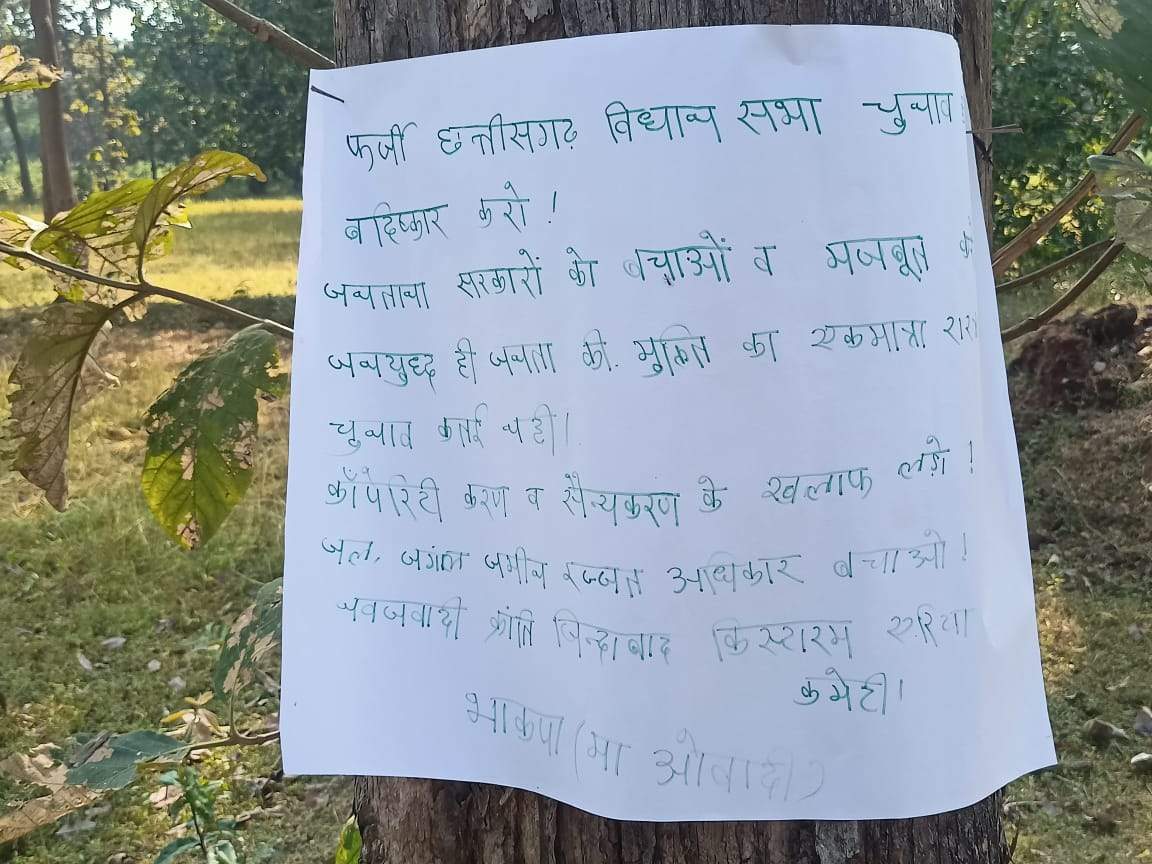 फर्जी छत्तीसगढ़ विधान सभा चुनाव
बहिष्कार करो !
जनताना सरकारों को बचाओं व मजबूत
जनयुध्द ही जनता की. मुक्ति का एकमात्रा
चुनाव कतई नही।
कॉर्पोरिटी करण व सैन्यकरण के खलाफ लड़ो !
जल, जगंल जमीन इज्जत अधिकार बचाओ !
नवजवादी क्रांति जिन्दाबाद किस्टारम एरिया
कमेटी।
भाकपा (मा ओवादी)